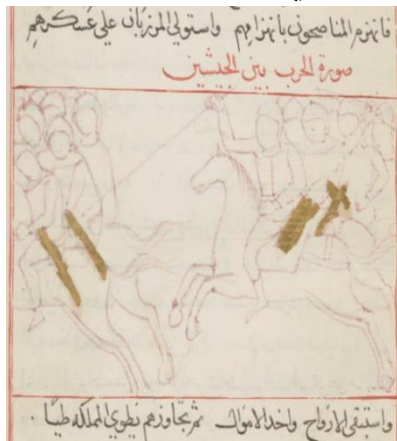 فانهزم المناصحون بانهزامهم واستولي المرزبان علي عسكرهم
صورة الحرب بين الجيشين
واستبقى الارواح واخذ الاموال ثم تجاوزهم يطوي المملكه طيًا